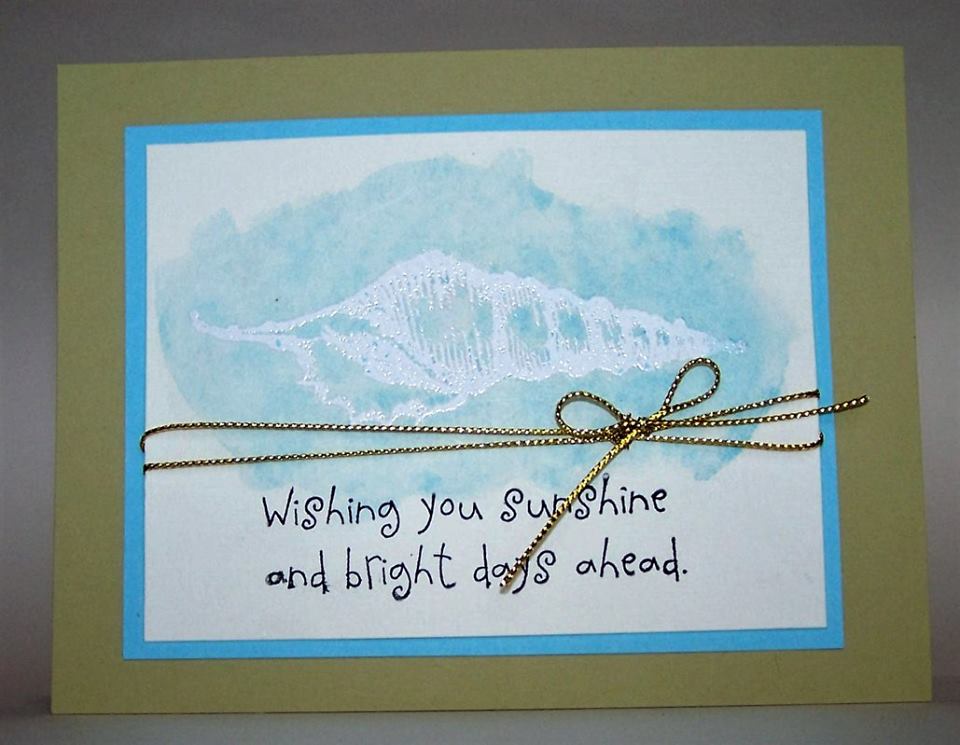 Wishing you sunshine
and bright days ahead.